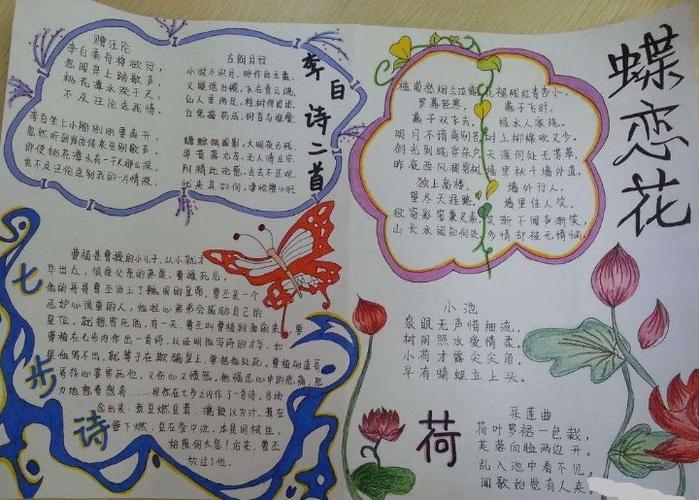 李白诗二首
赠汪伦
李白乘舟将欲行,
忽闻岸上踏歌声。
桃花潭水深千尺,
不及汪伦送我情。
李白坐上小船刚刚要离开,
忽然听到岸边传来告别歌声
即使桃花潭水有一千尺那么深,
也不及汪伦送别我的一片情深。
古朗月行
小时不识月,呼作白玉盘。
又疑瑶台镜,飞在青云端。
仙人垂两足,桂树何团团。
白兔捣药成,问言与谁餐。
蟾蜍蚀圆影,大明夜已残。
羿昔落九乌,天人清且安。
阴精此沦惑,去去不足观。
忧来其如何,凄怆摧心肝
蝶恋花
槛菊愁烟兰泣露
罗幕轻寒,
燕子双飞去。
明月不谙离别苦
斜光到晓穿朱户
昨夜西风凋碧树
独上高楼,
望尽天涯路。
欲寄彩笺兼尺素
山长水阔知何处
花褪残红青杏小,
燕子飞时,
绿水人家绕。
树上柳绵吹又少,
天涯何处无芳草,
墙里秋千墙外道,
墙外行人,
墙里佳人笑,
笑渐不闻声渐笑,
多情却被无情恼。
七步诗
曹植是曹操的小儿子,从小就才
华出众,很受父亲的疼爱。曹操死后,
他的哥哥曹丕当上了魏国的皇帝,曹丕是一个
忌妒心很重的人,他担心弟弟会威胁自己的
皇位,就想害死他。有一天,曹丕叫曹植到面前来,要
曹植在七步内作出一首诗,以证明他写诗的才华,如
果他写不出,就等于在欺骗皇上,要把他处死。曹植知道哥
哥存心要害死他,又伤心又愤怒,他强忍心中的悲痛,努
力地想着想着……果然在七步之内作了一首诗,当场
念出来:煮豆燃豆萁,漉豉以为汁,萁在
釜下燃,豆在釜中泣,本是同根生,
相煎何太急!后来,曹丕
放过了他。
荷
小池
泉眼无声惜细流,
树阴照水爱晴柔。
小荷才露尖尖角,
早有蜻蜓立上头。
采莲曲
荷叶罗裙一色裁,
芙蓉向脸两边开。
乱入池中看不见,
闻歌始觉有人来。